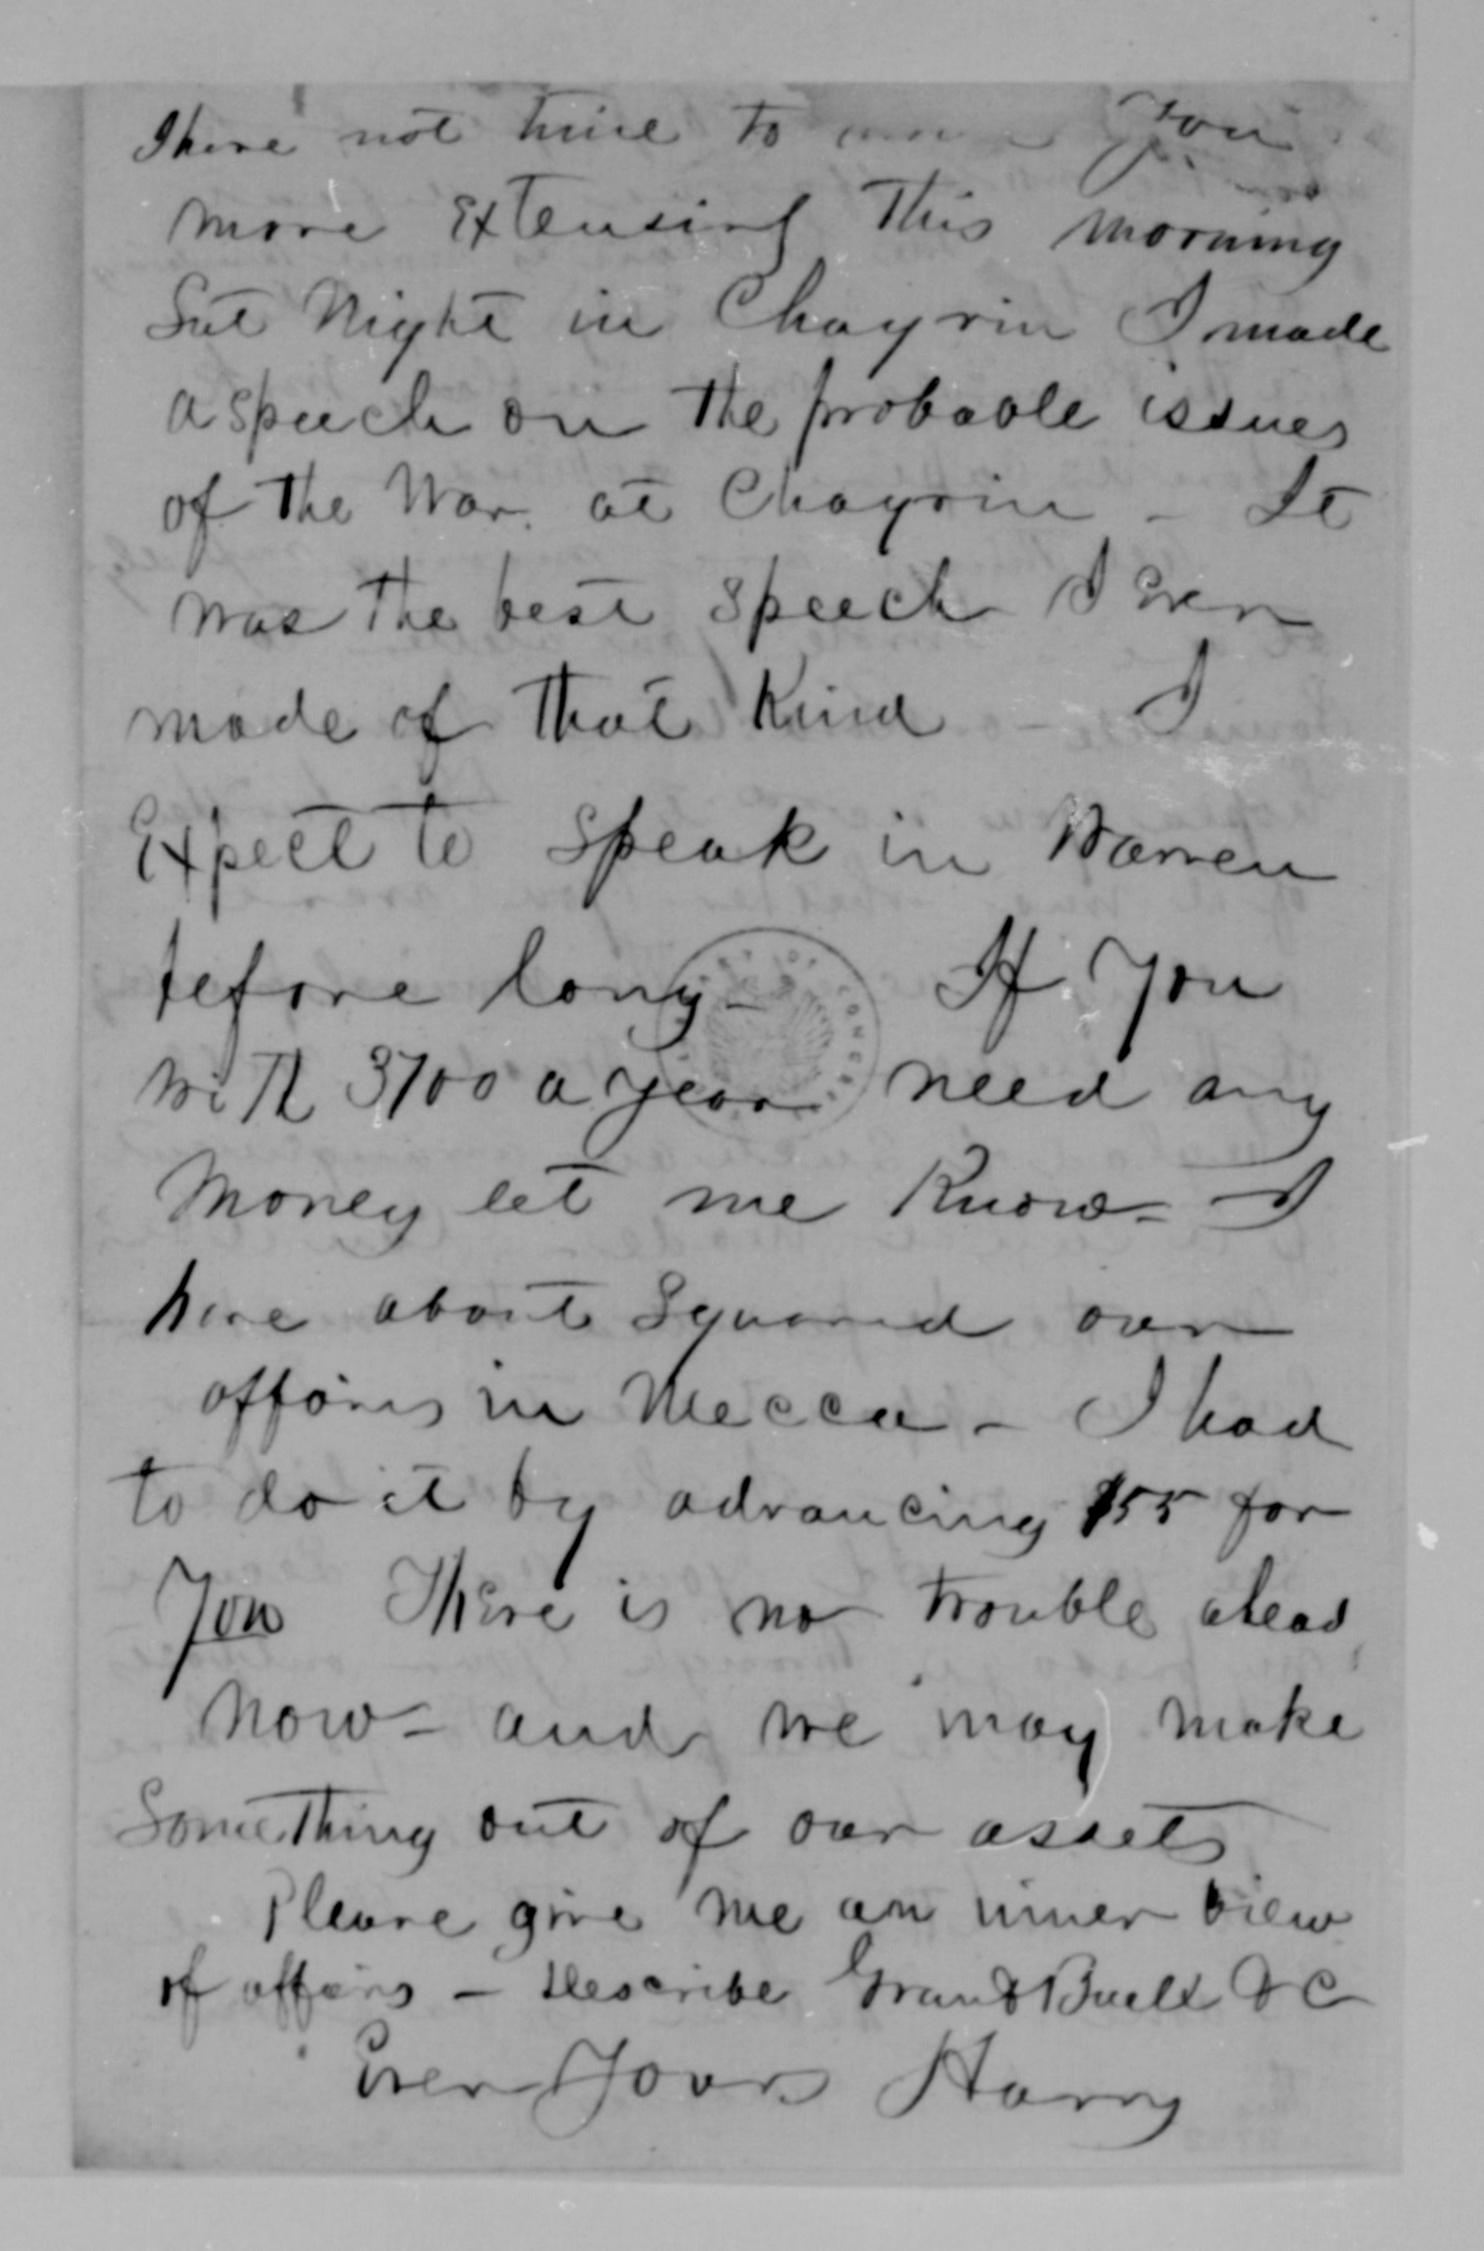 I have not time to you
more Extensively This morning
Sat Night in Chagrin I made
a speech on the probable issues
of the War. at Chagrin - It
was the best Speech I Ever
made of that Kind - I
Expect to Speak in Warren
before long - If you
with 3700 a year need any
Money let me Know - I
have about Squared our
affairs in Mecca - I had
to do it by advancing $55 for
You There is no trouble ahead
now - and we may make
Something out of our assets
Please give me an inner view
of affairs - describe Grant Buell &C
Ever Yours Harry